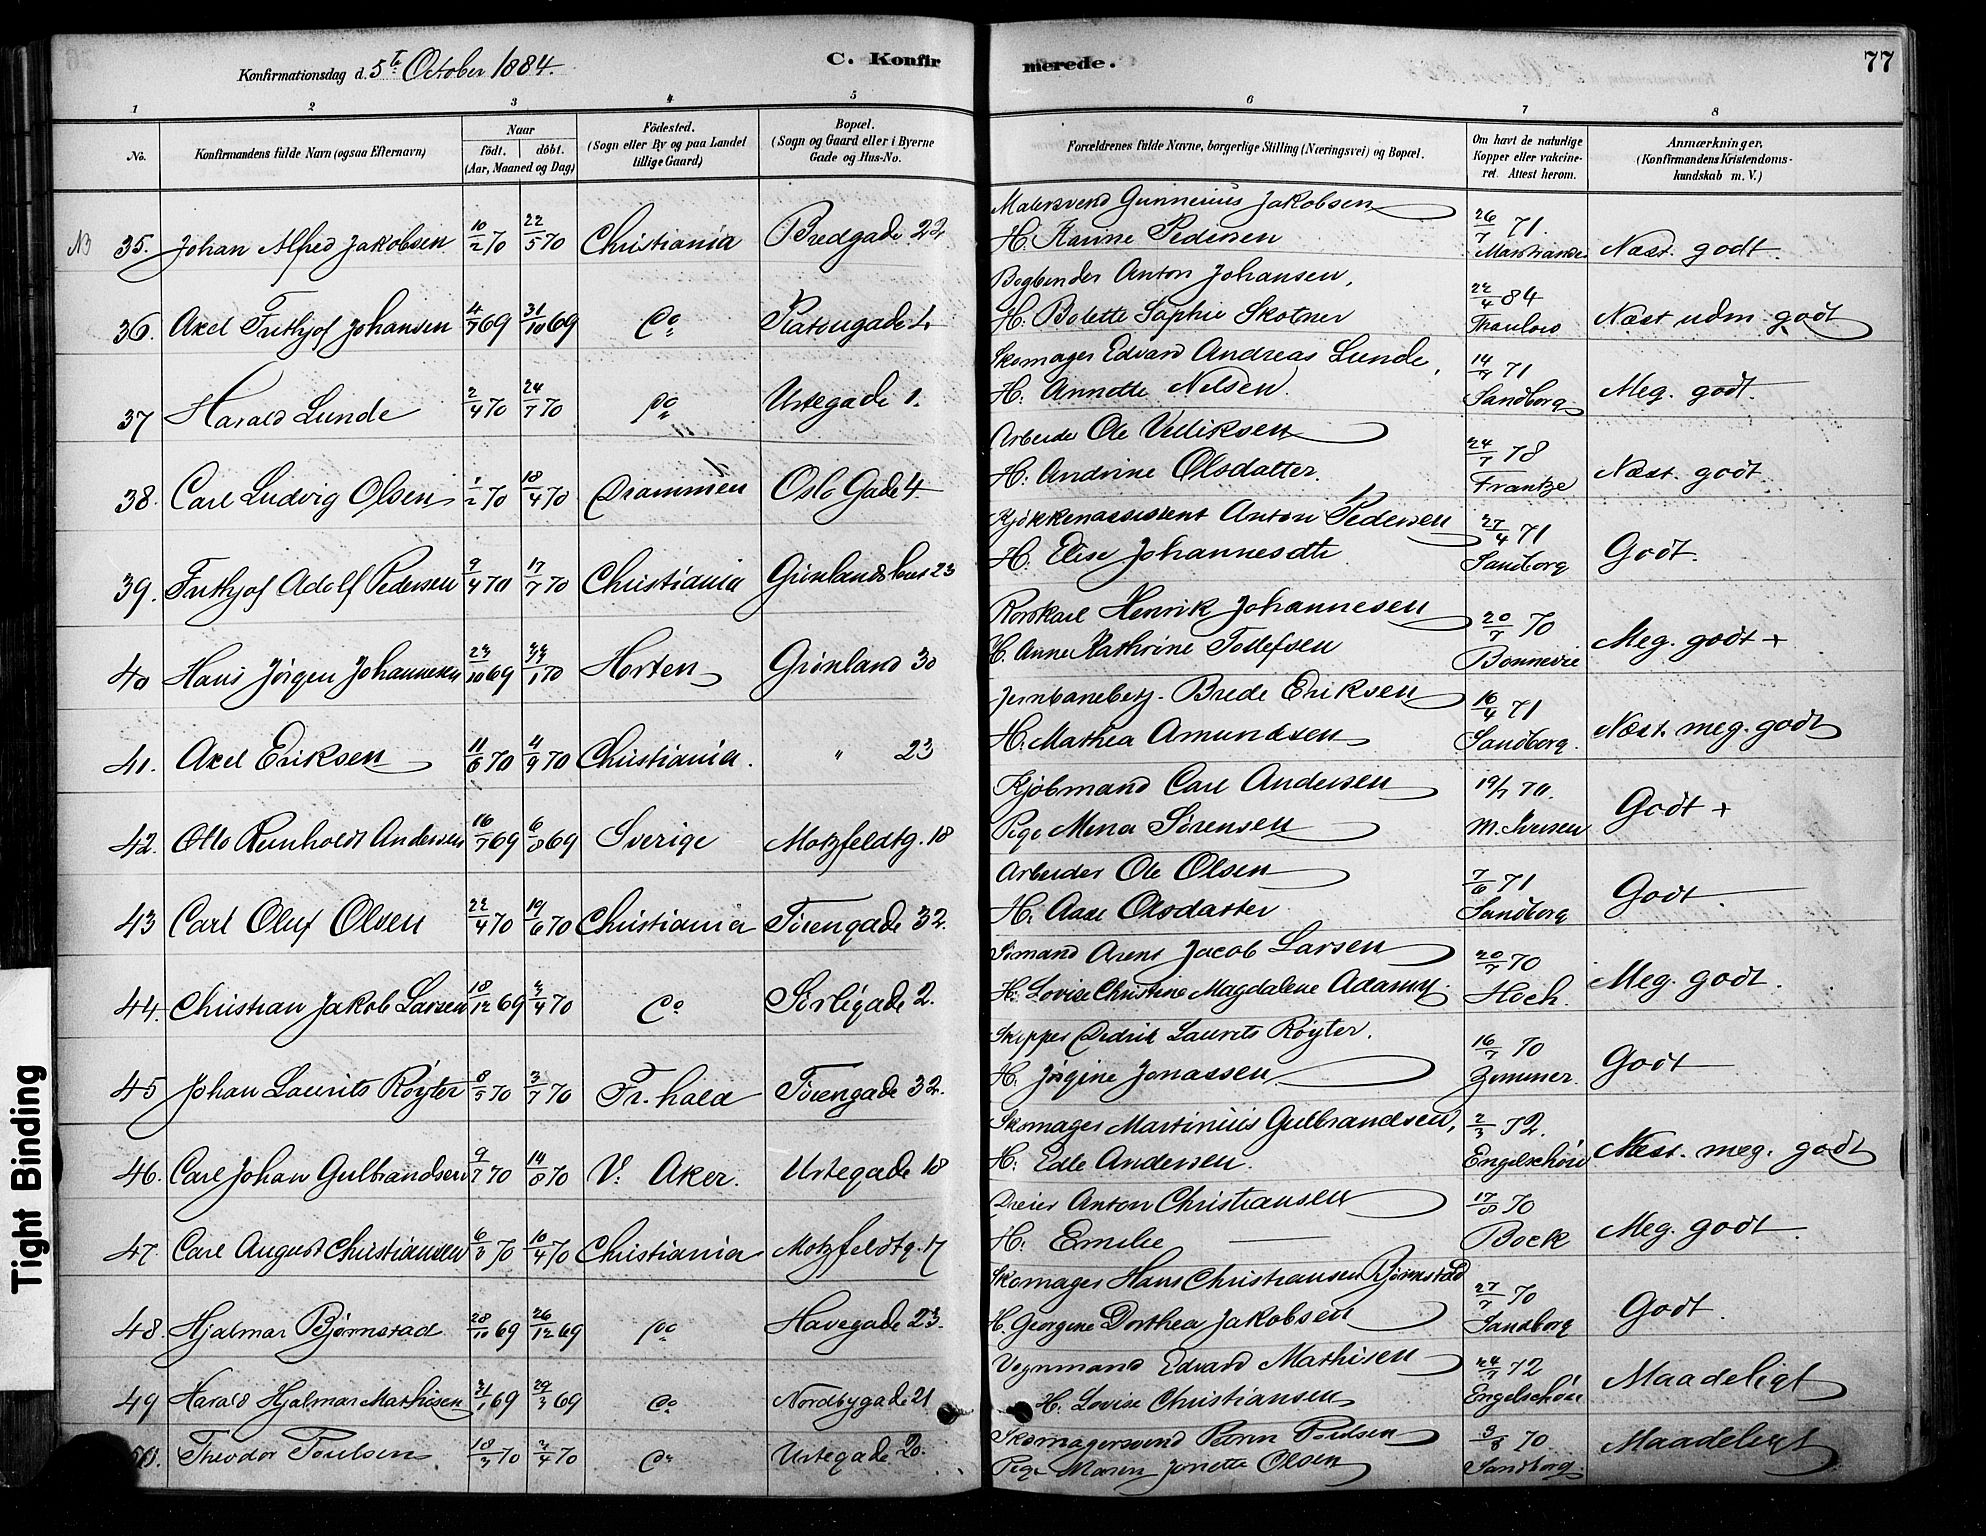 Konfirmationsdag d. 5te October 1884.
C. Konfirmerede.
77
1 2 3 4 5 6 7 8
No. Konfirmandens fulde Navn (ogsaa Efternavn) Naar födt. döbt. (Aar, Maaned og Dag) Födested. (Sogn eller By og paa Landet tillige Gaard) Bopæl. (Sogn og Gaard eller i Byerne Gade og Hus-No. Forældrenes fulde Navne, borgerlige Stilling (Næringsvei) og Bopæl. Om havt de naturlige Kopper eller vakcineret. Attest herom. Anmærkninger, (Konfirmandens Kristendomskundskab m. V.)
NB 35. Johan Alfred Jakobsen 10/2 70 22/5 70 Christiania Bredgade 22 Malersvend Gunnerius Jakobsen 26/7 71.
H: Karine Pedersen Marstrander Næst. godt.
36. Axel Frithjof Johansen 4/7 69 31/10 69 Do Platougade 4 Bogbinder Anton Johansen, 22/4 84
H: Bolette Sophie Skotner Næst udm. godt
37 Harald Lunde 2/4 70 24/7 70 Do Urtegade 1. Skomager Edvard Andreas Lunde, 14/7 71
H. Annette Nelsen. Sandborg Meg. godt.
38. Carl Ludvig Olsen 1/2 70 18/4 70 Drammen Oslo Gade 4 Arbeider Ole 24/7 78
H. Andrine Olsdatter. Frantze Næst. godt.
39. Frithjof Adolf Pedersen 9/4 70 17/7 70 Christiania Grønlandsleret 23 Kjøkkenassistent Anton Pedersen 27/4 71
H. Elise Johannesdtr Sandborg Godt.
40 Hans Jørgen Johannesen 23/10 69 1 70 Horten Grønland 30 Korskarl Henrik Johannesen 20/7 70
H. Anne Kathrine Tollefsen Bonnevie Meg. godt +
41. Axel Eriksen 11/6 70 4/9 70 Christiania. " 23 Jernbanebetj. Brede Eriksen 16/4 71
H: Mathea Amundsen Sandborg. Næst. meg. godt
42. Otto Reinholdt Andersen 16/7 69 6/8 69 Sverige Motzfeldtg. 18 Kjøbmand Carl Andersen 19/7 70.
Pige Mena Sørensen M. Iversen Godt +
43 Carl Oluf Olsen 22/4 70 19/6 70 Christiania Tøiengade 32. Arbeider Ole Olsen 7/6 71
H: Aase Olsdatter Sandborg Godt.
44. Christian Jakob Larsen 18/12 69 3/4 70 Do Sørligade 2. Sømand Arent Jacob Larsen 20/7 70
H: Lovise Christine Magdalene Adamy. Hoch. Meg. godt.
45 Johan Laurits Røyter 8/5 70 3/7 70 Fr. hald Tøiengade 32. Skipper Didrik Laurits Røyter. 16/7 70
H. Jørgine Jonassen Zimmer Godt
46. Carl Johan Gulbrandsen 9/7 70 14/8 70 V. Aker. Urtegade 18 Skomager Martinius Gulbrandsen, 2/3 72.
H: Edle Andersen. Engelschøn Næst. meg. godt
47. Carl August Christiansen 6/3 70 10/4 70 Christiania Motzfeldtg. 17 Dreier Anton Christiansen 17/8 70
H. Emilie Bock Meg. godt.
48. Hjalmar Bjørnstad 28/10 69 26/12 69 Do Havegade 23. Skomager Hans Christiansen Bjørnstad 27/7 70
H. Georgine Dorthea Jakobsen Sandborg Godt.
49 Harald Hjalmar Mathisen 1 69 29/3 69 Do Nordbygade 21 Vognmand Edvard Mathisen 24/7 72
H. Lovise Christiansen Engelschøn Maadeligt
50. Theodor Poulsen 18/3 70 4 70 Do Urtegade 20. Skomagersvend Poulsen 3/8 70
Pige Maren Jonette Olsen Sandborg. Maadeligt
Tight Binding